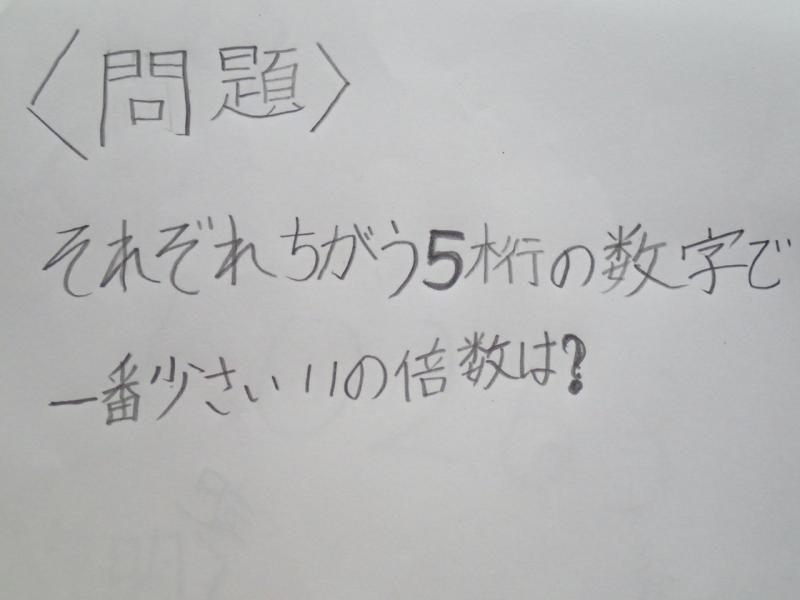 〈問題〉
それぞれちがう5桁の数字で
一番少さい11の倍数は?